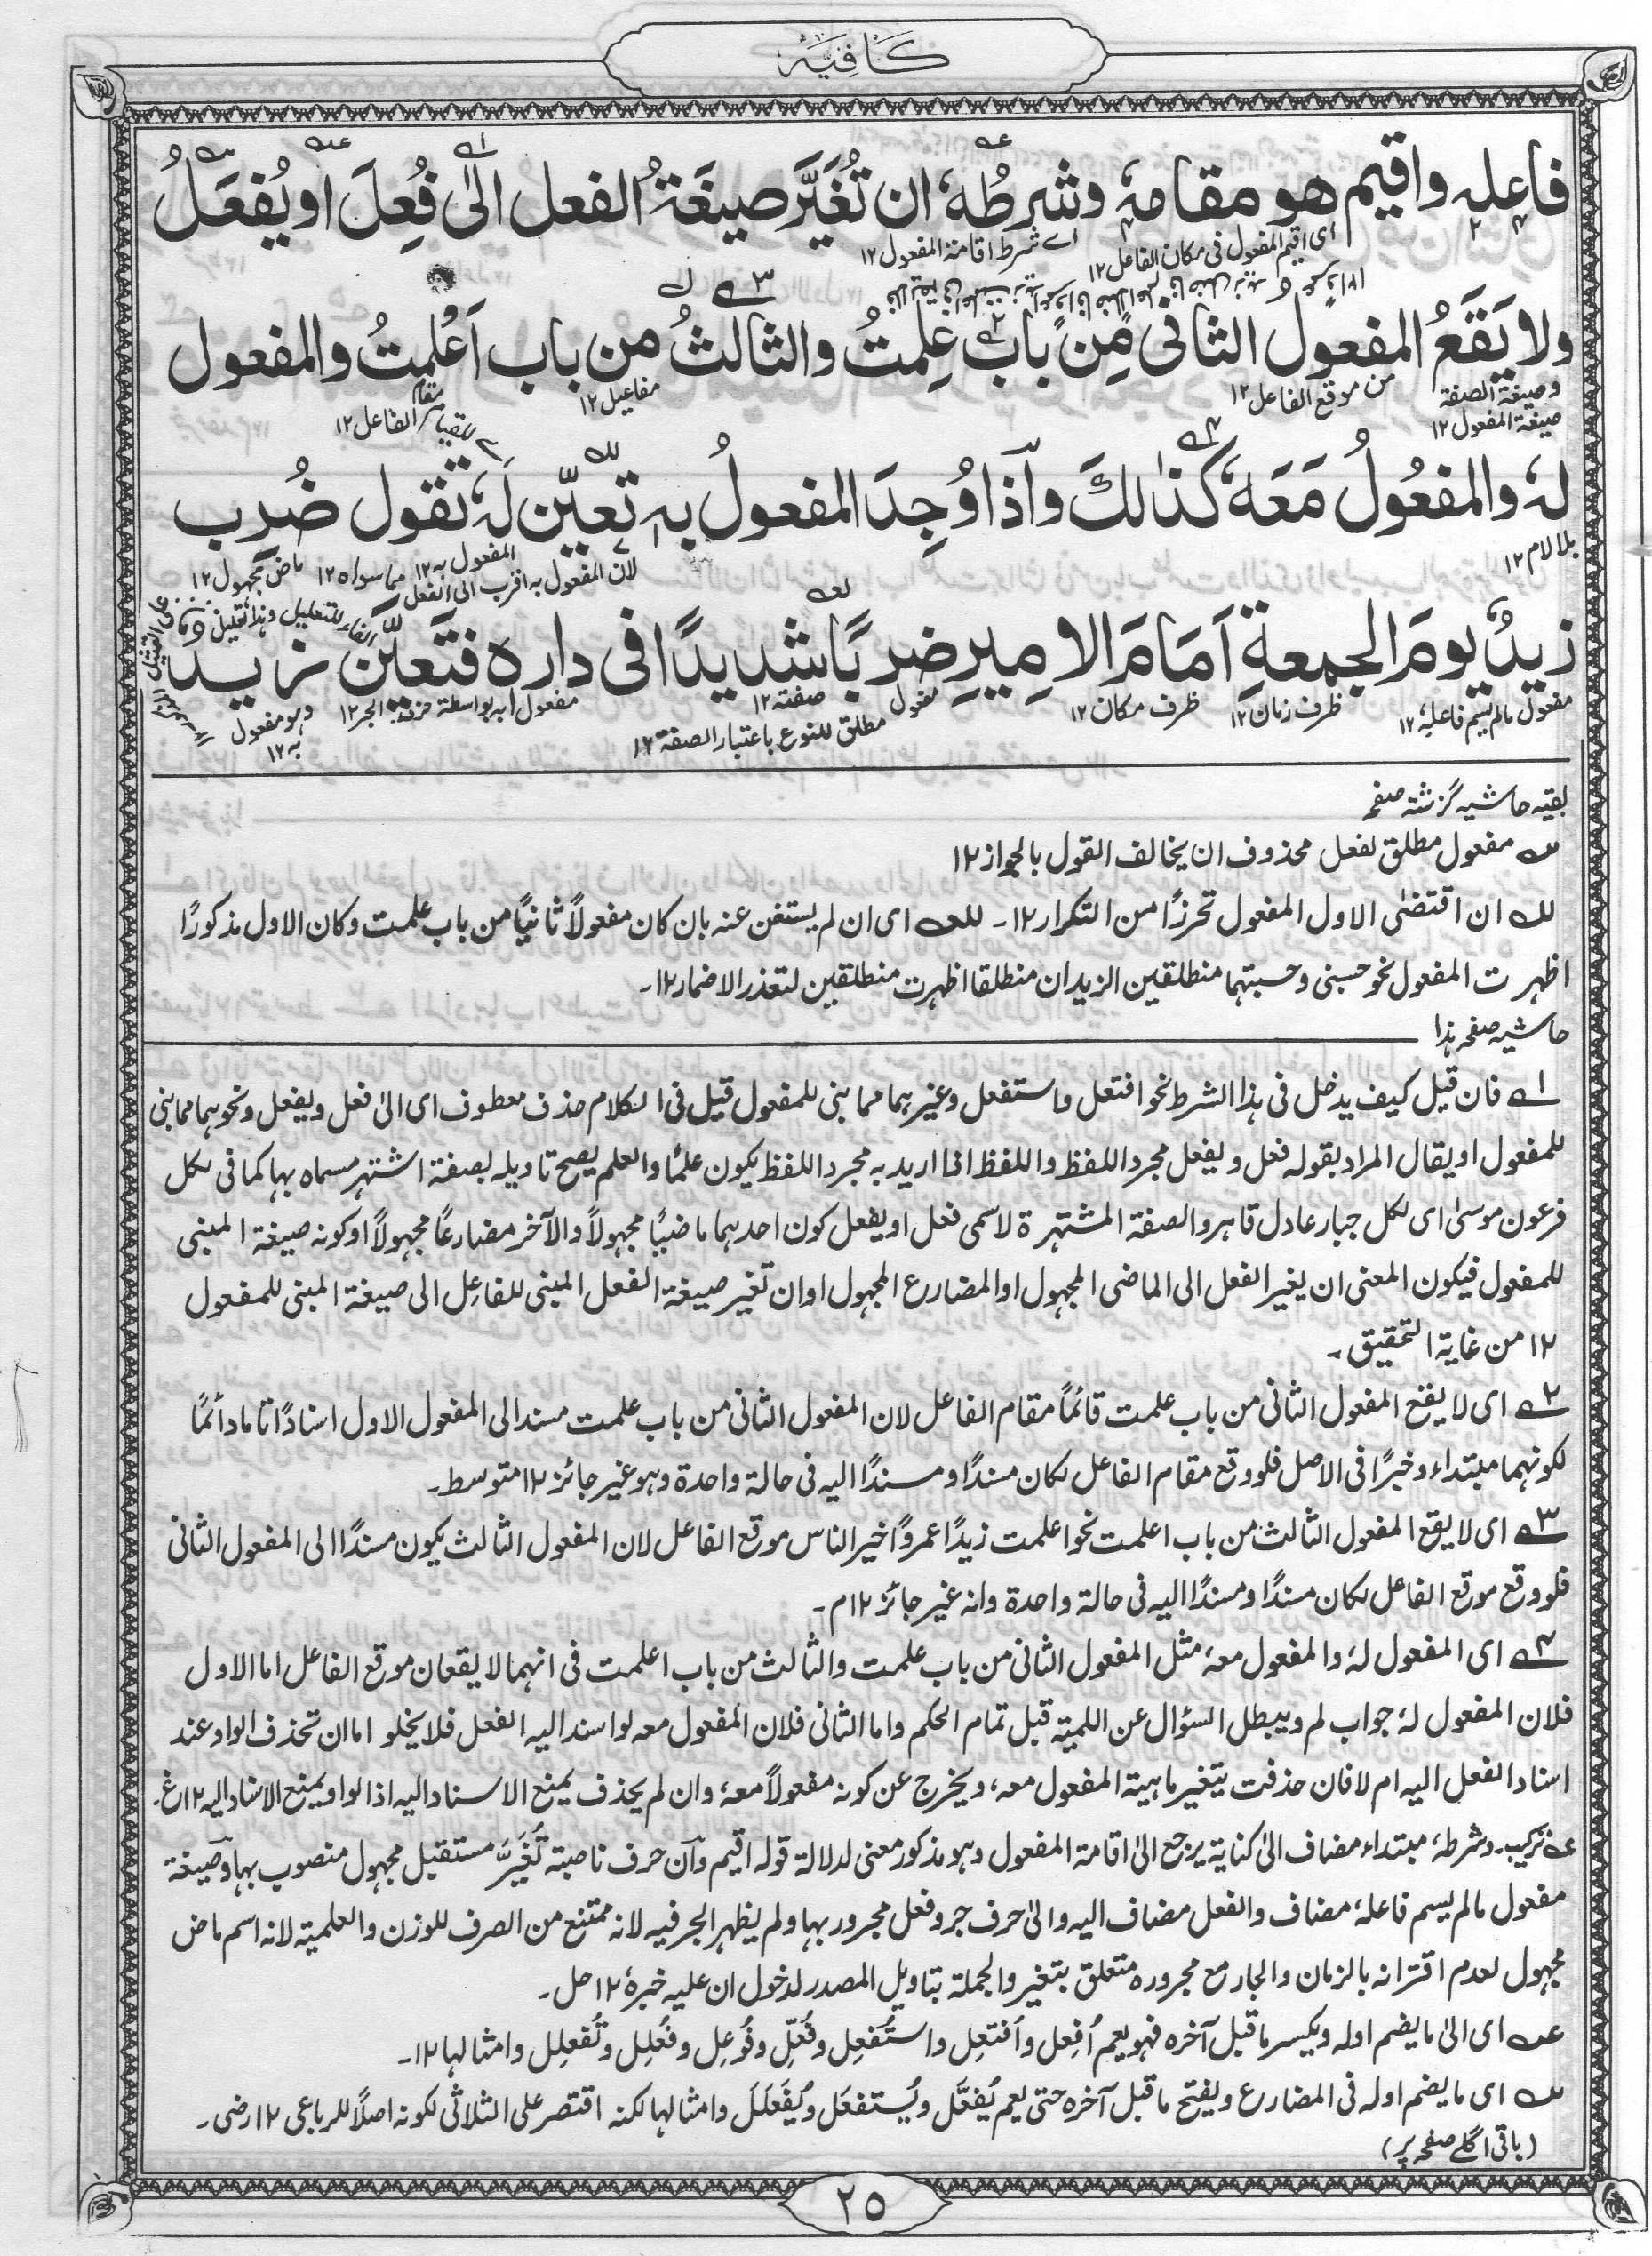 كَافِيَه
فاعلِه واقيم هو مقامهٗ وشرطُهٗ ان تُغَيَّرَ صيغَةُ الفعل الىٰ فُعِلَ او يُفعَلُ
اى اقيم المفعول فى مكان الفاعل ١٢
اے شرط اقامة المفعول ١٢
ولا يَقَعُ المفعول الثانى مِن باب عَلِمتُ والثالثُ من باب اَعْلمتُ والمفعول
وصيغة الصفة صيغة المفعول ١٢
من موقع الفاعل ١٢
مفاعيل ١٢
مقام الفاعل ١٢
لهٗ والمفعُولُ مَعَهٗ كذٰلكَ واذا وُجِدَ المفعولُ بهٖ تعيّن لَهٗ تقول ضُرب
بلا لام ١٢
لان المفعول به اقرب الى الفعل مما سواه ١٢
المفعول به ١٢
ماض مجهول ١٢
زيدٌ يومَ الجمعةِ اَمَامَ الامِيرِ ضربًا شديدًا فى داره فتَعيَّن زيد
مفعول مالم يسم فاعله ١٢
ظرف زمان ١٢
ظرف مكان ١٢
مفعول مطلق للنوع باعتبار الصفة ١٢
صفته ١٢
مفعول به بواسطة حرف الجر ١٢
وهو مفعول به ١٢
بقيه حاشيہ گزشتہ صفحہ
مفعول مطلق لفعل محذوف ان يخالف القول بالجواز ١٢
ان اقتضٰى الاول المفعول تحرزًا من التكرار ١٢۔ اى ان لم يستغن عنه بان كان مفعولاً ثانيًا من باب علمت وكان الاول مذكورًا
اظهرت المفعول نحو حسبنى وحسبتهما منطلقين الزيدان منطلقا اظهرت منطلقين لتعذر الاضمار ١٢۔
حاشيہ صفحہ ہذا
١ے فان قيل كيف يدخل فى هذا الشرط نحو افتعل واستفعل وغيرهما مما بنى للمفعول قيل فى الكلام حذف معطوف اى الىٰ فعل ويفعل ونحوهما مما بنى
للمفعول او يقال المراد بقوله فعل ويفعل مجرد اللفظ واللفظ اذا اريد به مجرد اللفظ يكون علمًا والعلم يصح تاويله بصفة اشتهر مسماه بها كما فى لكل
فرعون موسىٰ اى لكل جبار عادل قاهر والصفة المشتهرة لاسمى فعل او يفعل كون احدهما ماضيًا مجهولاً والآخر مضارعًا مجهولاً او كونه صيغة المبنى
للمفعول فيكون المعنى ان يغير الفعل الى الماضى المجهول او المضارع المجهول او ان تغير صيغة الفعل المبنى للفاعِل الى صيغة المبنى للمفعول
١٢ من غاية التحقيق۔
٢ے اى لا يقع المفعول الثانى من باب علمت قائمًا مقام الفاعل لان المفعول الثانى من باب علمت مسند الى المفعول الاول اسنادًا تاما دائمًا
لكونهما مبتداء وخبرًا فى الاصل فلو وقع مقام الفاعل لكان مسندًا ومسندًا اليه فى حالة واحدة وهو غير جائز ١٢ متوسط۔
٣ے اى لا يقع المفعول الثالث من باب اعلمت نحو اعلمت زيدًا عمروًا خير الناس موقع الفاعل لان المفعول الثالث يكون مسندًا الى المفعول الثانى
فلو وقع موقع الفاعل لكان مسندًا ومسندًا اليه فى حالة واحدة وانه غير جائز ١٢ م۔
٤ے اى المفعول لهٗ والمفعول معهٗ مثل المفعول الثانى من باب علمت والثالث من باب اعلمت فى انهما لا يقعان موقع الفاعل اما الاول
فلان المفعول لهٗ جواب لم ويبطل السؤال عن اللمية قبل تمام الحكم واما الثانى فلان المفعول معه لو اسند اليه الفعل فلا يخلو اما ان تحذف الواو عند
اسناد الفعل اليه ام لا فان حذفت يتغير ماهية المفعول معه، ويخرج عن كونه مفعولاً معهٗ، وان لم يحذف يمنع الاسناد اليه اذ الواو يمنع الاسناد اليه ١٢ غ۔
عہ تركيب۔ وشرطهٗ مبتداء مضاف الىٰ كناية يرجع الىٰ اقامة المفعول وهو مذكور معنى لدلالة قوله اقيم واَن حرف ناصبة تُغَيَّرَ مستقبل مجهول منصوب بها وصيغة
مفعول مالم يسم فاعلهٗ مضاف والفعل مضاف اليه والىٰ حرف جر وفعل مجرور بها ولم يظهر الجر فيه لانه ممتنع من الصرف للوزن والعلمية لانه اسم ماض
مجهول لعدم اقترانه بالزمان والجار مع مجروره متعلق بتغير والجملة بتاويل المصدر لدخول ان عليه خبرهٗ ١٢ حل۔
عہ اى الىٰ ما يضم اوله ويكسر ما قبل آخره فهو يعم اُفعِل واُفتعِل واستُفعِل وفُعِّل وفُوعِل وفُعلِل وتُفعلِل وامثالها ١٢۔
اى ما يضم اوله فى المضارع ويفتح ما قبل آخره حتى يعم يُفتعَل ويُستفعَل ويُفَعلَل وامثالها لكنه اقتصر على الثلاثى لكونه اصلاً للرباعى ١٢ رضى۔
(باقى اگلے صفحہ پر)
٢٥